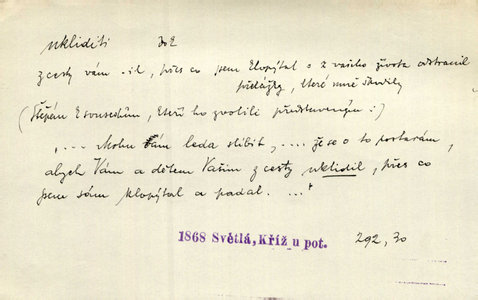 ukliditi dok
z cesty vám -il, přes co jsem klopýtal = z vašeho života odstranil
překážky, které mně škodily
(Štěpán k sousedům, kteří ho zvolili představeným:)
„.... Mohu Vám leda slíbit, .... že se o to postarám,
abych Vám a dětem Vašim z cesty uklidil, přes co
jsem sám klopýtal a padal. ..."
1868 Světlá, Kříž u pot. 292, 30